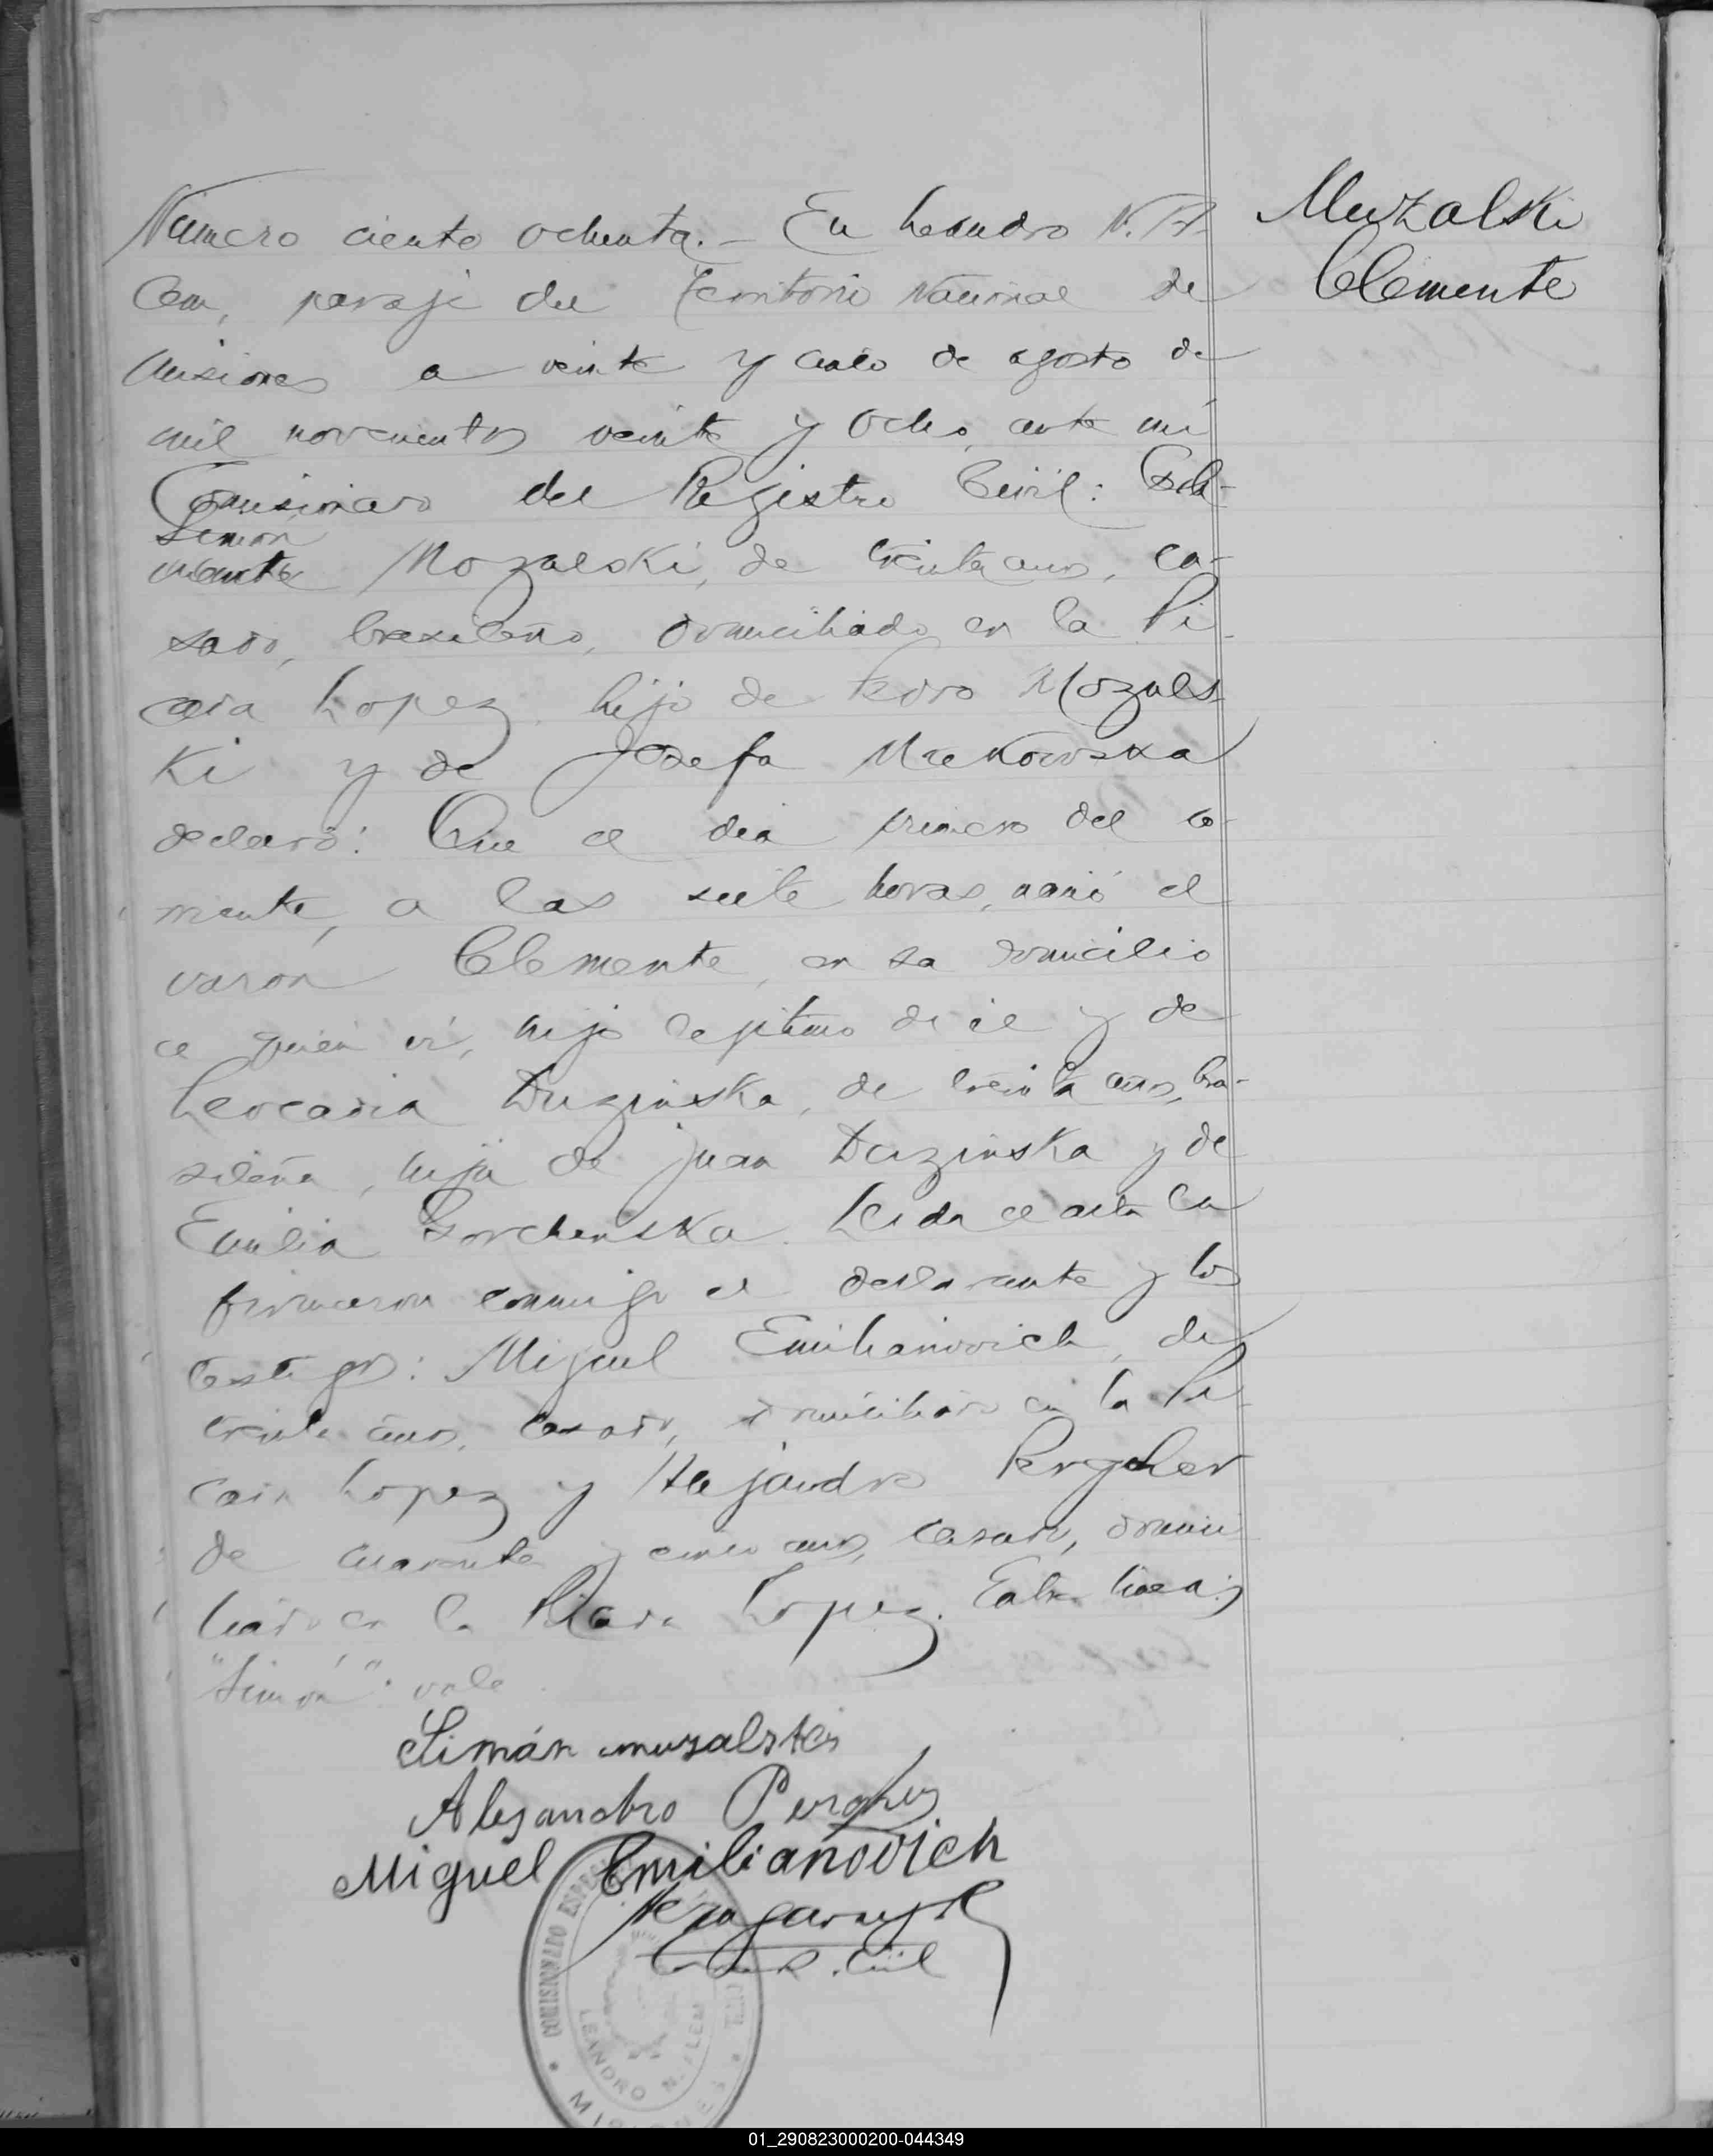 Muzalski
Clemente
Número ciento ochenta.- En Leandro N. A-
lem, paraje del Territorio Nacional de
Misiones a veinte y cinco de agosto de
mil novecientos veinte y ocho, ante mi
Comisionado del Registro Civil:
Simón
Mozalski, de treinta años, ca-
sado, brasileño, domiciliado en la Pi-
cada Lopez, hijo de Pedro Mozals-
ki y de Josefa
declaró: Que el dia primero del co-
rriente, a las siete horas, nació el
varon Clemente, en su domicilio
a quien vi, hijo legitimo de él y de
Leocadia Duzinska, de treinta años, bra-
sileña, hija de Juan Duzinska y de
Emilia Gorchenska. Leida el acta la
firmaron conmigo el declarante y los
testigos: Miguel Emilianovich, de
treinta años, casado, domiciliado en la Pi-
cada Lopez y Alejandro Pergher
de cuarenta y cinco años, casado, domici-
liado en la Picada Lopez. Entre lineas:
"Simón": vale.
Simán muzalski
Alejandro Pergher
Miguel Emilianovich
R. Civil
COMISIONADO ESPECIAL CIVIL
LEANDRO N. ALEM
MISIONES
01_290823000200-044349